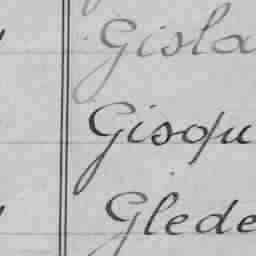 Gisla
Gisqu
Glede